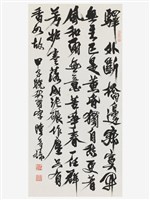 驛外斷橋邊寂寞開
無主已是黃昏獨自愁更著
風和雨無意苦爭春一任群
芳妒零落成泥碾作塵只有
香如故 甲子